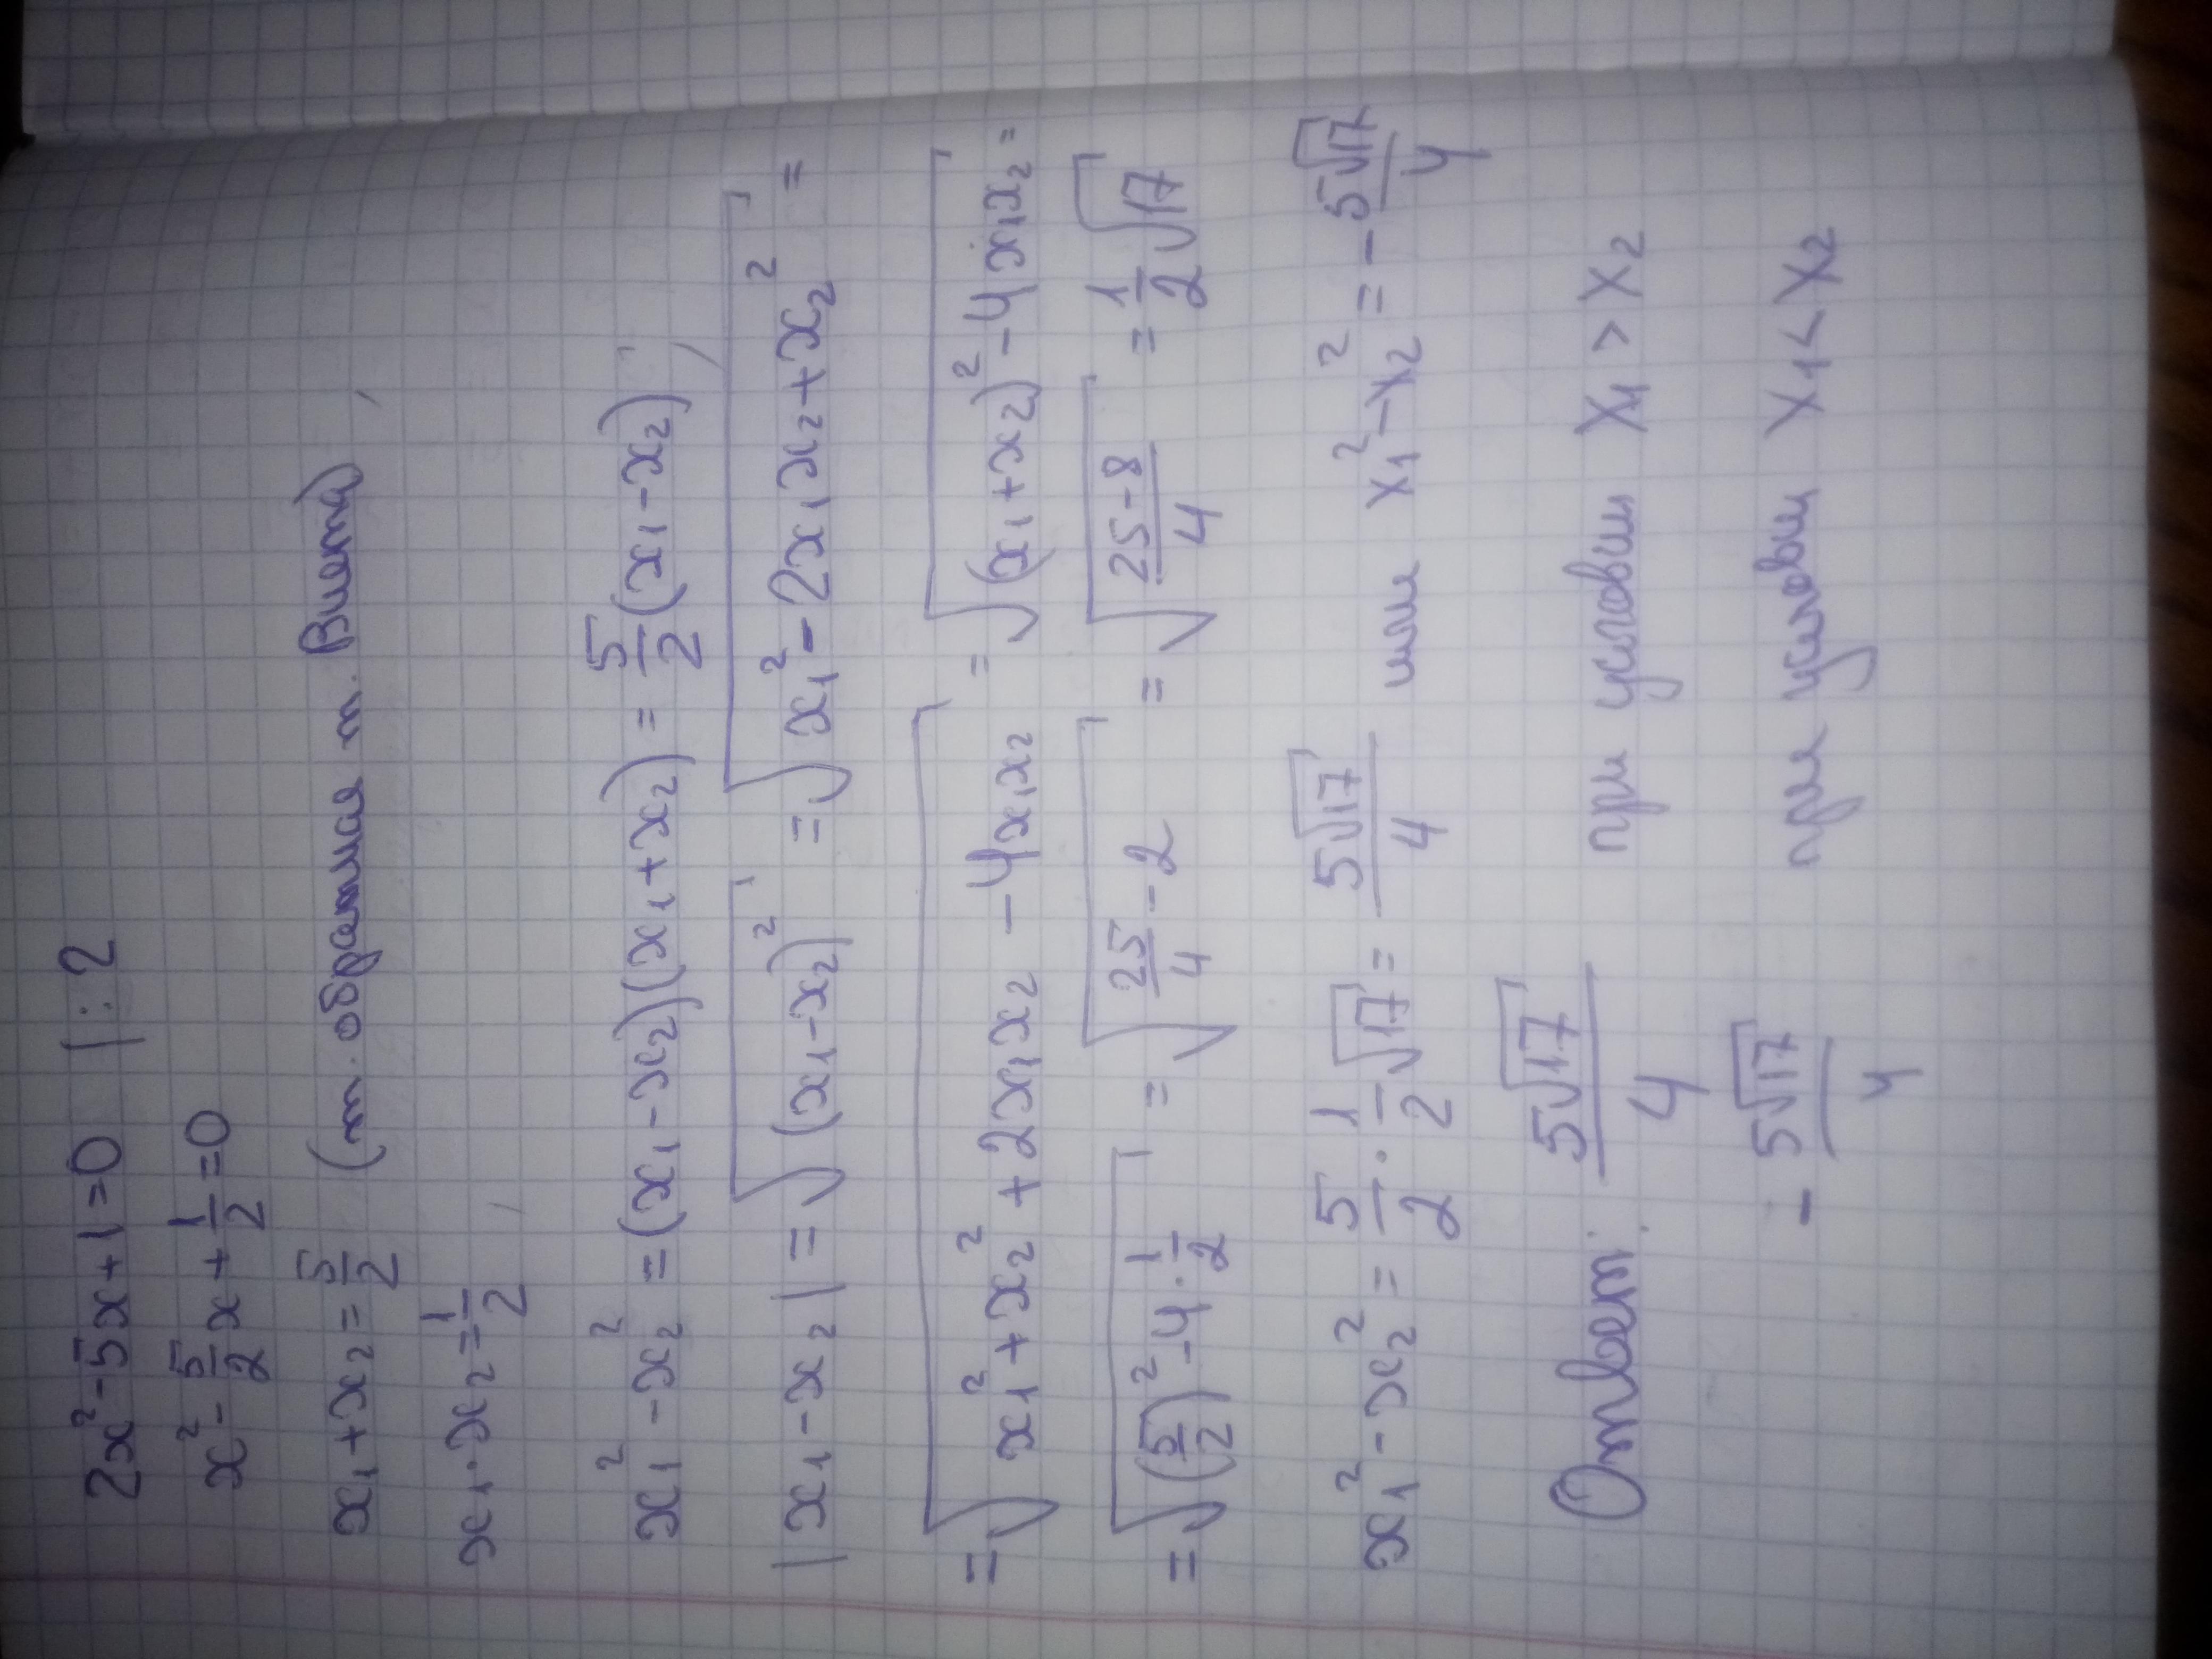 2x² - 5x + 1 = 0 | : 2
x² - 5/2 x + 1/2 = 0
x₁ + x₂ = 5/2 (т. обратная т. Виета)
x₁ · x₂ = 1/2
x₁² - x₂² = (x₁ - x₂)(x₁ + x₂) = 5/2 (x₁ - x₂)
|x₁ - x₂| = √((x₁ - x₂)²) = √(x₁² - 2x₁x₂ + x₂²) =
= √(x₁² + x₂² + 2x₁x₂ - 4x₁x₂) = √((x₁ + x₂)² - 4x₁x₂) =
= √((5/2)² - 4 · 1/2) = √(25/4 - 2) = √((25 - 8)/4) = 1/2 √17
x₁² - x₂² = 5/2 · 1/2 √17 = 5√17/4 или x₁² - x₂² = - 5√17/4
Ответ: 5√17/4 при условии x₁ > x₂
- 5√17/4 при условии x₁ < x₂